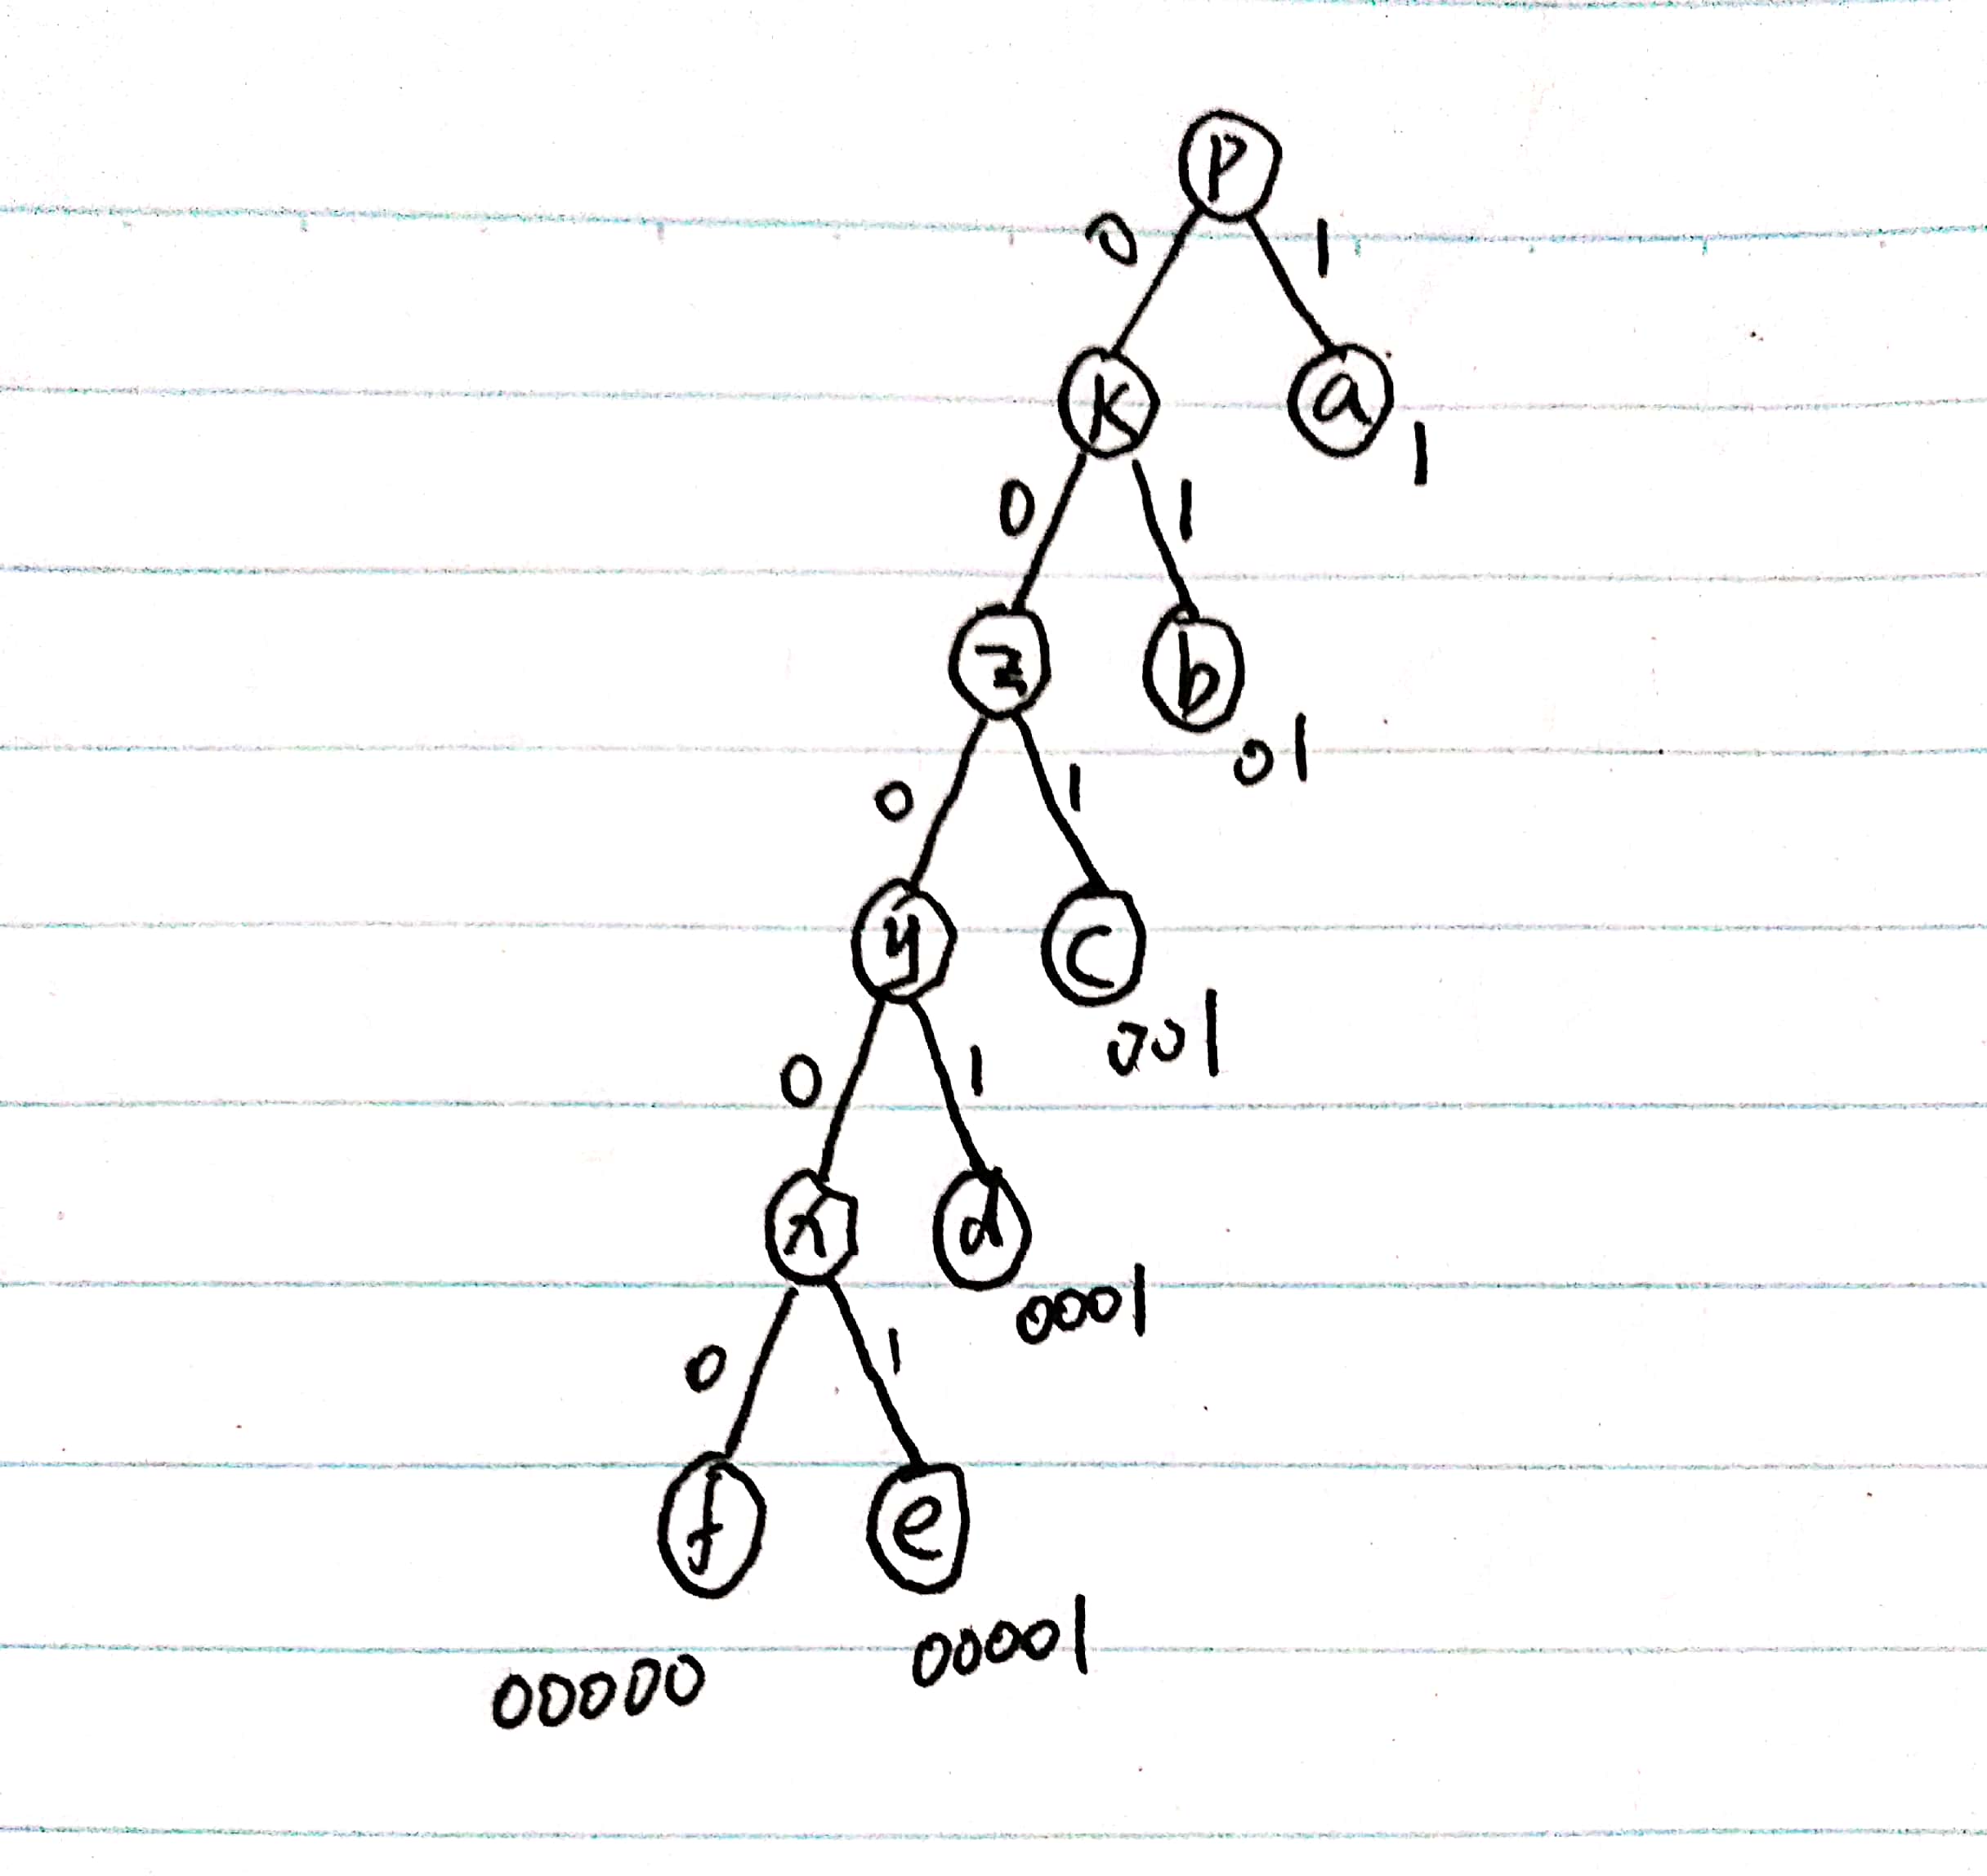 P
0 1
K a
1
0 1
z b
01
0 1
y c
001
0 1
x d
0001
0 1
f e
00001
00000